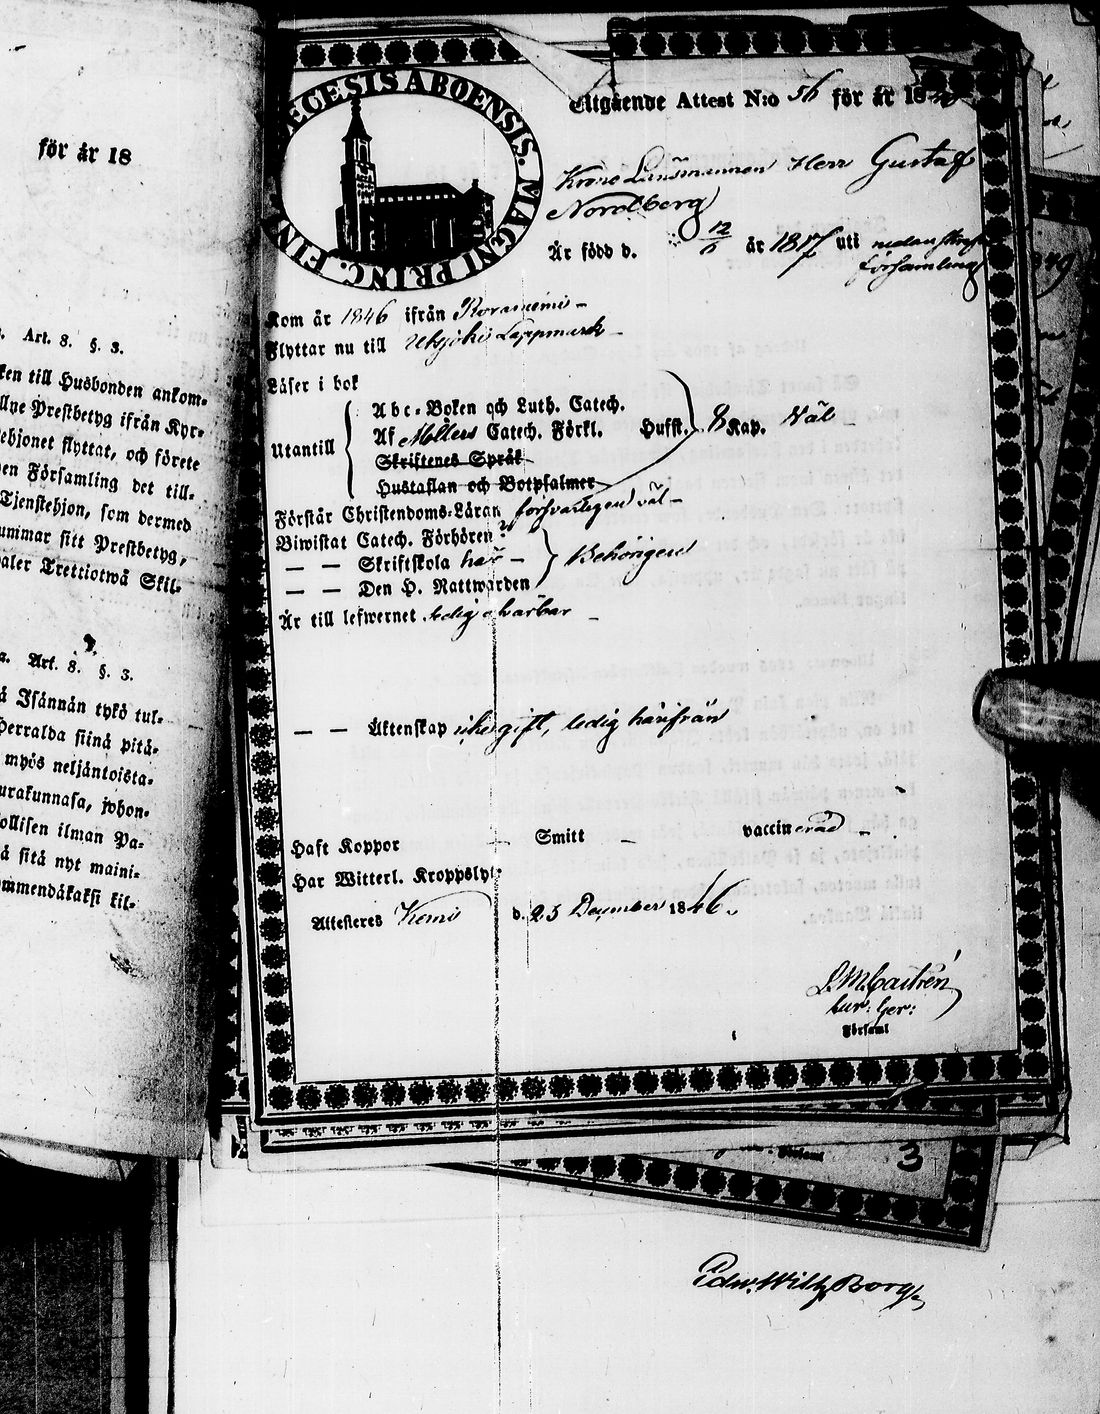 för år 18
Art. 8. §. 3.
ken till Husbonden ankom-
Prestbetyg ifrån Kyr-
flyttat, och förete
en Församling det till-
Tjenstehjon, som dermed
summar sitt Prestbetyg,
aler Trettiotwå Skil-
Art. 8. §. 3.
å Isännän tykö tul-
Herralda siinä pitä-
myös neljäntoista-
urakunnasa, johon-
ollisen ilman Pa-
ä sitä nyt maini-
ommendäkaksi kil-
ŒCESIS ABOENSIS. MAGNI PRINC. FIN
Utgående Attest N:o 56 för år 18
Krono Länsmannen Herr Gustaf
Nordberg
Är född d. 12/6 år 1817 uti nedanskrefne
församling
Kom år 1846 ifrån Rovaniemi –
Flyttar nu till Utsjoki Lappmark –
Läser i bok
Abc-Boken och Luth. Catech.
Utantill Af Möllers Catech. Förkl. Hufst. 8 Kap. Väl –
Skriftenes Språk
Hustaflan och Botpsalmer
Förstår Christendoms-Läran försvarligen väl –
Biwistat Catech. Förhören
— — Skriftskola har – Behörigen
— — Den H. Nattwarden
Är till lefwernet ledig o ärbar –
— — Äktenskap icke gift, ledig härifrån
Haft Koppor – Smitt – vaccinerad –
Har Witterl. Kroppslyt
Attesteres Kemi d. 23 December 1846.
L. M. Castrén
Cur: Ger:
Församl
Församl
3
Edw. Wilh. Borg